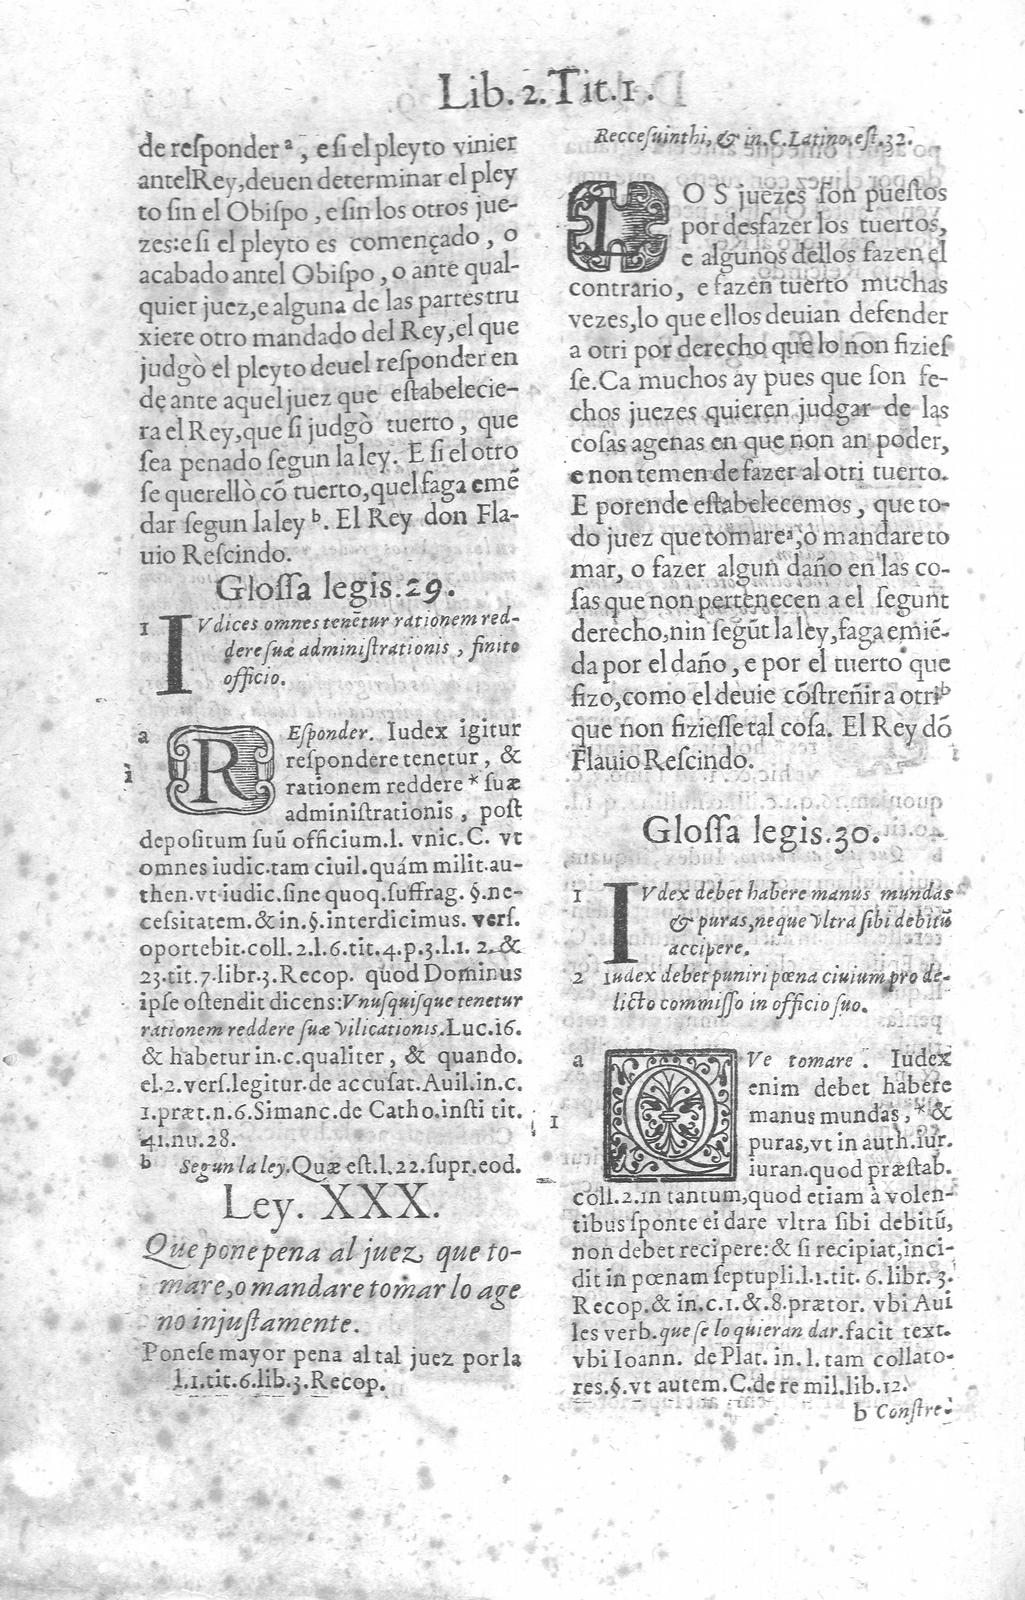 Lib.2.Tit.1.
de responder ª, e si el pleyto vinier
antel Rey, deuen determinar el pley
to sin el Obispo, e sin los otros jue-
zes: e si el pleyto es començado, o
acabado antel Obispo, o ante qual-
quier juez, e alguna de las partes tru
xiere otro mandado del Rey, el que
judgò el pleyto deuel responder en
de ante aquel juez que estabelecie-
ra el Rey, que si judgò tuerto, que
sea penado segun la ley. E si el otro
se querellò cõ tuerto, quel faga emẽ
dar segun la ley ᵇ. El Rey don Fla-
uio Rescindo.
Glossa legis.29.
1 IVdices omnes tenẽtur rationem red-
dere suæ administrationis, finito
officio.
a REsponder. Iudex igitur
1 respondere tenetur, &
rationem reddere * suæ
administrationis, post
depositum suũ officium.l. vnic.C. vt
omnes iudic.tam ciuil.quám milit.au-
then.vt iudic.sine quoq.suffrag. §.ne-
cessitatem.&.in.§.interdicimus. vers.
oportebit.coll.2.l.6.tit.4.p.3.l.1. 2.&
23.tit.7.libr.3.Recop. quod Dominus
ipse ostendit dicens: Vnusquisque tenetur
rationem reddere suæ vilicationis. Luc.16.
& habetur in.c.qualiter, & quando.
el.2.vers.legitur.de accusat.Auil.in.c.
1.præt.n.6.Simanc.de Catho.insti tit.
41.nu.28.
b Segun la ley. Quæ est.l.22.supr.eod.
Ley. XXX.
Que pone pena al juez, que to-
mare, o mandare tomar lo age
no injustamente.
Ponese mayor pena al tal juez por la
l.1.tit.6.lib.3.Recop.
Reccesuinthi, & in.C.Latino.est.32.
LOS juezes son puestos
por desfazer los tuertos,
e algunos dellos fazen el
contrario, e fazen tuerto muchas
vezes, lo que ellos deuian defender
a otri por derecho que lo non fizies
se. Ca muchos ay pues que son fe-
chos juezes quieren judgar de las
cosas agenas en que non an poder,
e non temen de fazer al otri tuerto.
E porende estabelecemos, que to-
do juez que tomareª, o mandare to
mar, o fazer algun daño en las co-
sas que non pertenecen a el segunt
derecho, nin segũt la ley, faga emiẽ-
da por el daño, e por el tuerto que
fizo, como el deuie cõstreñir a otriᵇ
que non fiziesse tal cosa. El Rey dõ
Flauio Rescindo.
Glossa legis.30.
1 IVdex debet habere manus mundas
& puras, neque vltra sibi debitũ
accipere.
2 Iudex debet puniri pœna ciuium pro de-
licto commisso in officio suo.
a QVe tomare. Iudex
enim debet habere
1 manus mundas, * &
puras, vt in auth.iur.
iuran.quod præstab.
coll.2.in tantum, quod etiam à volen-
tibus sponte ei dare vltra sibi debitũ,
non debet recipere: & si recipiat, inci-
dit in pœnam septupli.l.1.tit. 6.libr. 3.
Recop.& in.c.1.&.8.prætor. vbi Aui
les verb.que se lo quieran dar.facit text.
vbi Ioann. de Plat. in. l. tam collato-
res.§.vt autem.C.de re mil.lib.12.
b Constre-